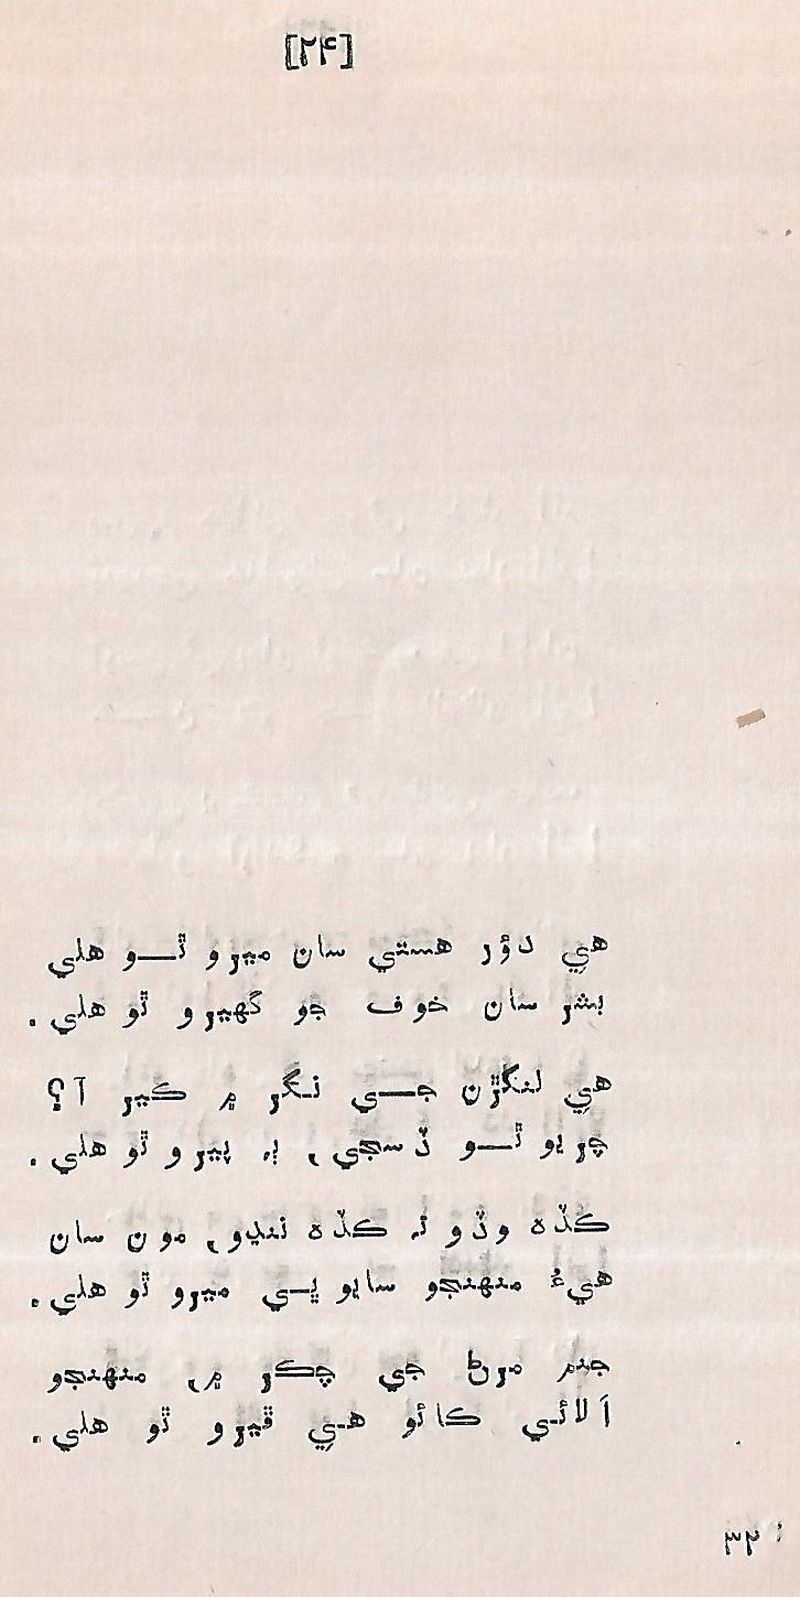 [۲۴]
هي دؤر هستي سان ميرو ٿو هلي
بشر سان خوف جو گهيرو ٿو هلي.
هي لنگڙن جي نگر ۾ ڪير آ؟
چريو ٿو ڏسجي، ٻہ پيرو ٿو هلي.
ڪڏه وڏو تہ ڪڏه ننڍو، مون سان
هيءُ منهنجو سايو ڀي ميرو ٿو هلي.
جنم مرڻ جي چڪر ۾، منهنجو
اَلائي ڪاٿو هي ڦيرو ٿو هلي.
: ۳۲